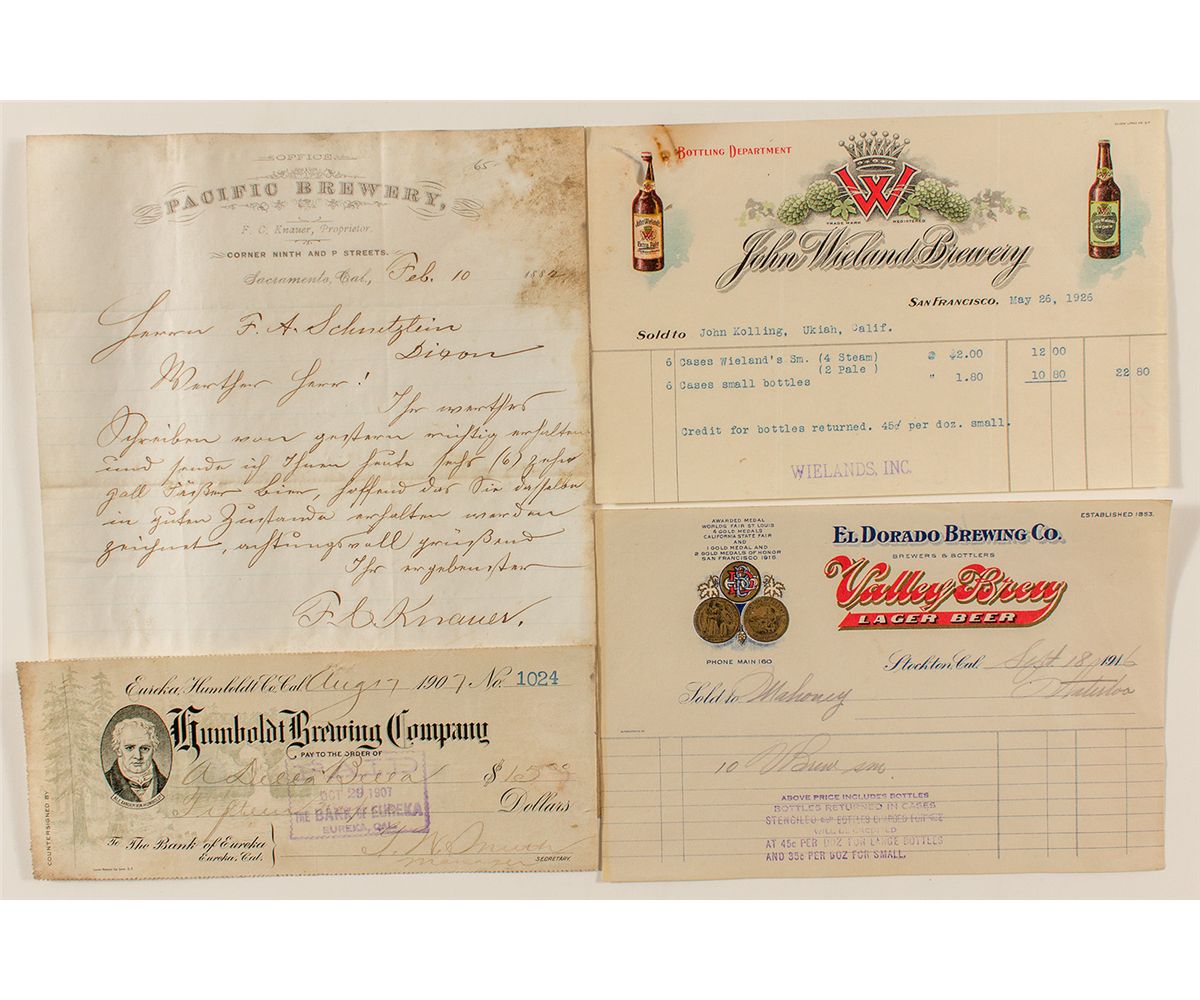 OFFICE
PACIFIC BREWERY,
65-
F. C. Knauer, Proprietor.
CORNER NINTH AND P STREETS.
Sacramento, Cal., Feb. 10 1882
Herrn F. A. Schnetzlein
Dixon
Werther Herr!
Ihr werthes
Schreiben von gestern richtig erhalten
und sende ich Ihnen heute sechs (6) zehn
gall Fäßer Bier, hoffend das Sie dasselbe
in guten Zustande erhalten werden
zeichnet, achtungsvoll grüßend
Ihr ergebenster
F. C. Knauer.
BOTTLING DEPARTMENT
W
TRADE MARK REGISTERED
John Wieland Brewery
SAN FRANCISCO, May 26, 1926
Sold to John Kolling, Ukiah, Calif.
6 Cases Wieland's Sm. (4 Steam) @ $2.00 12 00
(2 Pale )
6 Cases small bottles " 1.80 10 80 22 80
Credit for bottles returned. 45¢ per doz. small.
WIELANDS, INC.
Eureka, Humboldt Co. Cal. Aug 7 1907 No. 1024
Humboldt Brewing Company
PAY TO THE ORDER OF
$15.00
Fifteen Dollars
OCT 29 1907
THE BANK OF EUREKA
EUREKA, CAL.
ALEXANDER VON HUMBOLDT
COUNTERSIGNED BY
To The Bank of Eureka
Eureka, Cal.
Manager SECRETARY.
AWARDED MEDAL
WORLDS FAIR ST. LOUIS
4 GOLD MEDALS
CALIFORNIA STATE FAIR
AND
1 GOLD MEDAL AND
2 GOLD MEDALS OF HONOR
SAN FRANCISCO 1915.
PHONE MAIN 160
ESTABLISHED 1853.
EL DORADO BREWING CO.
BREWERS & BOTTLERS
Valley Brew
LAGER BEER
Stockton Cal. Sept 18 1916
Sold to Mahoney
Waterloo
10 V Brew sm.
ABOVE PRICE INCLUDES BOTTLES
BOTTLES RETURNED IN CASES
STENCILED
WILL BE CREDITED
AT 45c PER DOZ FOR LARGE BOTTLES
AND 35c PER DOZ FOR SMALL.